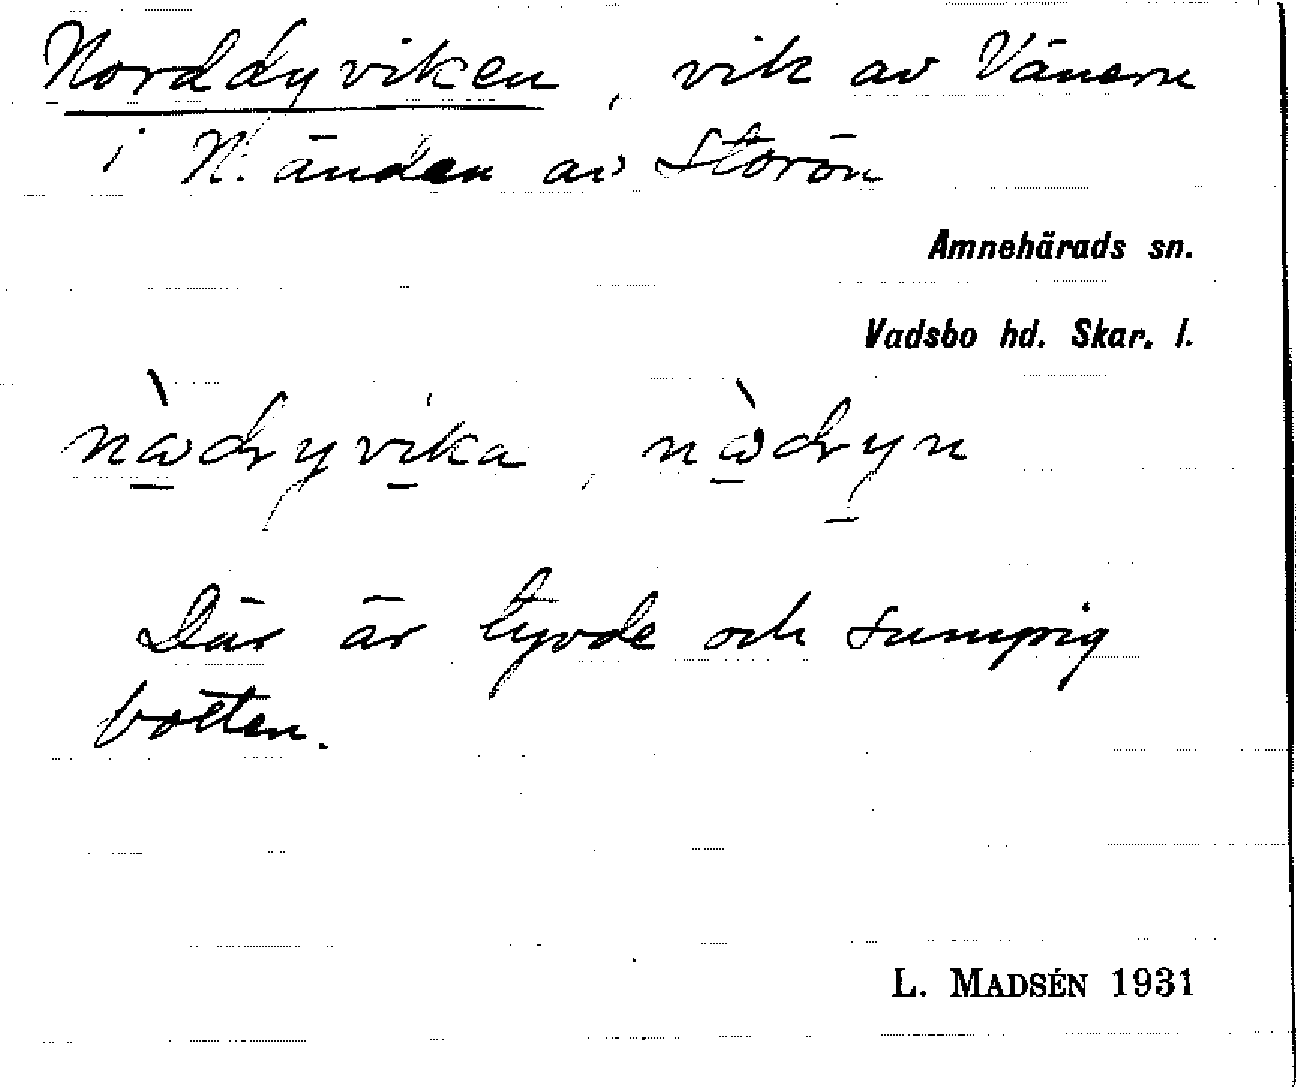 Norddyviken, vik av Vänern
i N. änden av Storön
Amnehärads sn.
Vadsbo hd. Skar. l.
nὰdyvika, nὰdyn
Där är tyvde och sumpig
botten.
L. MADSÉN 1931